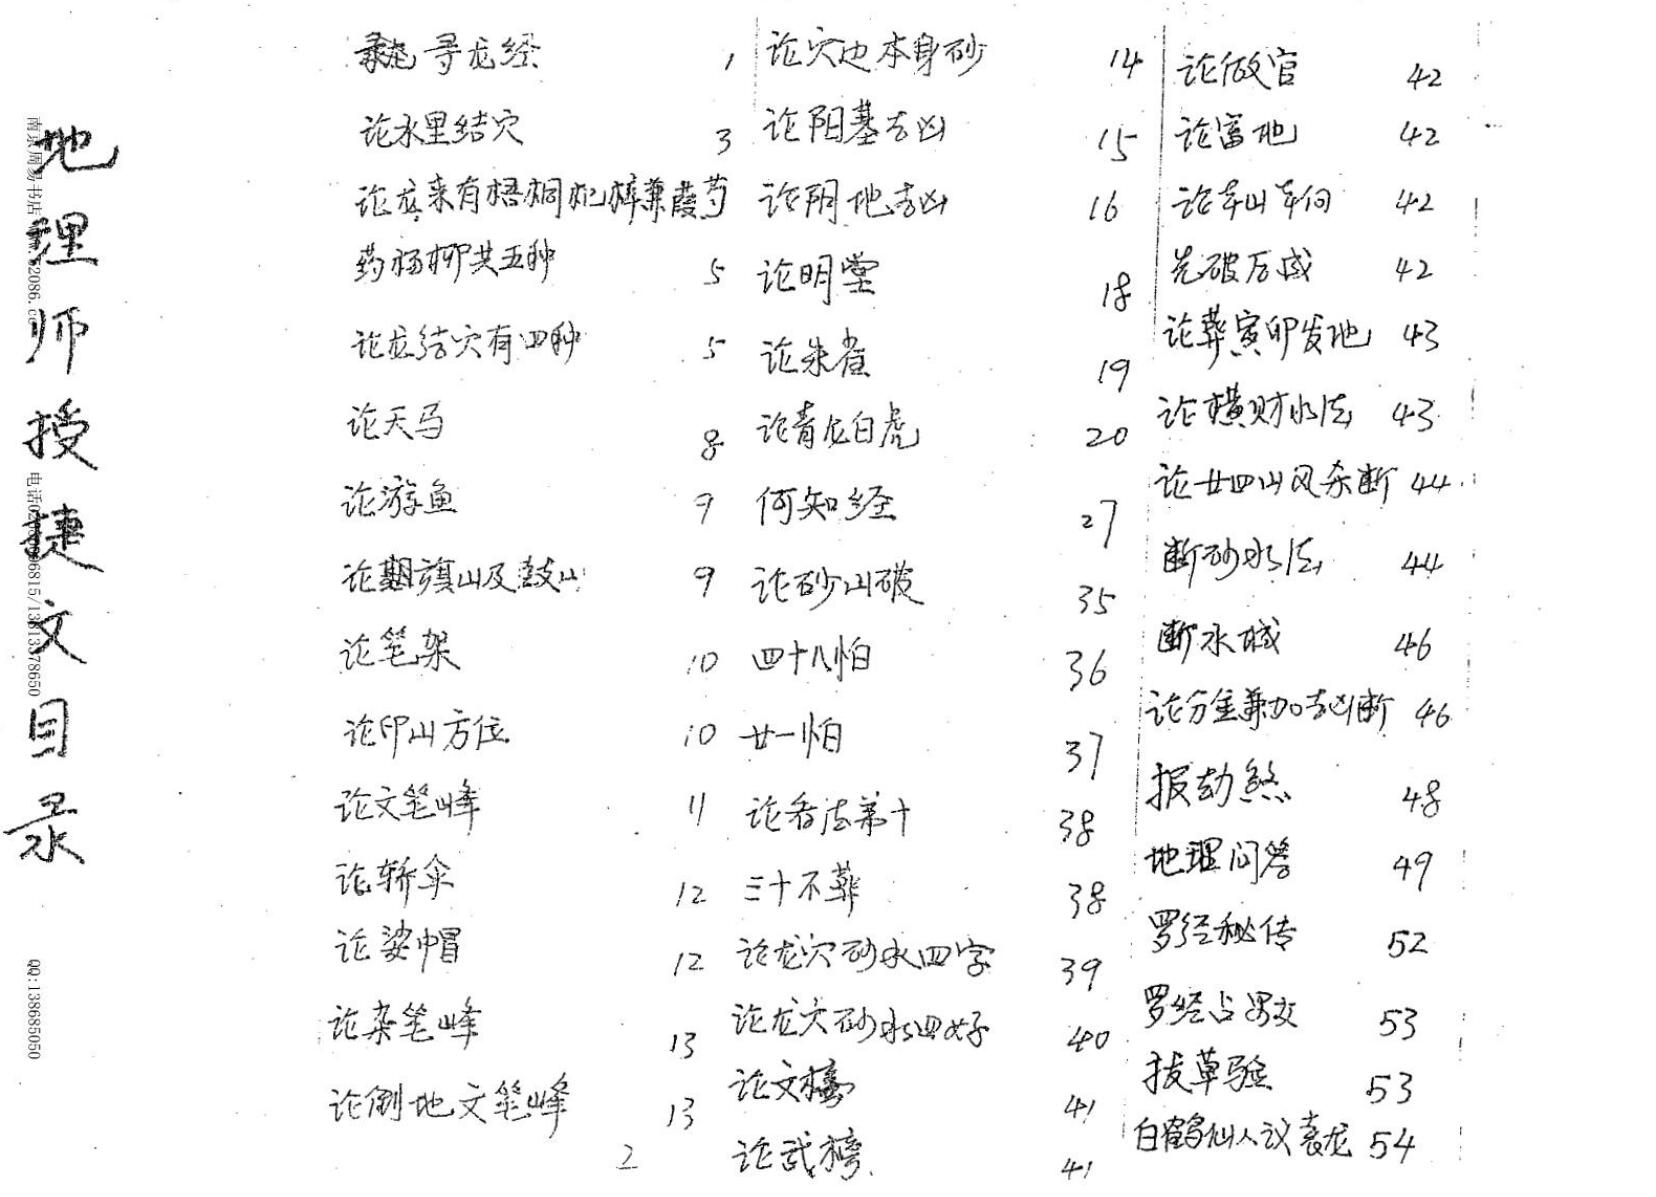 地理师授捷文目录
寻龙经 1
论水里结穴 3
论龙来有梧桐杞梓蒹葭芍
药杨柳共五种 5
论龙结穴有四种 5
论天马 8
论游鱼 9
论旗山及鼓山 9
论笔架 10
论印山方位 10
论文笔峰 11
论轿伞 12
论娑帽 12
论杂笔峰 13
论倒地文笔峰 13
2
论穴边本身砂 14
论阳基吉凶 15
论阴地吉凶 16
论明堂 18
论朱雀 19
论青龙白虎 20
何知经 27
论砂山破 35
四十八怕 36
廿一怕 37
论看法第十 38
三十不葬 38
论龙穴砂水四字 39
论龙穴砂水四好 40
论文榜 41
论武榜 41
论做官 42
论富地 42
论本山本向 42
先破后成 42
论葬寅卯发地 43
论横财水法 43
论廿四山风杀断 44
断砂水法 44
断水碱 46
论分金兼加吉凶断 46
报劫煞 48
地理问答 49
罗经秘传 52
罗经占男女 53
拔草验 53
白鹤仙人议袁龙 54
南京周易书店
QQ:138685050